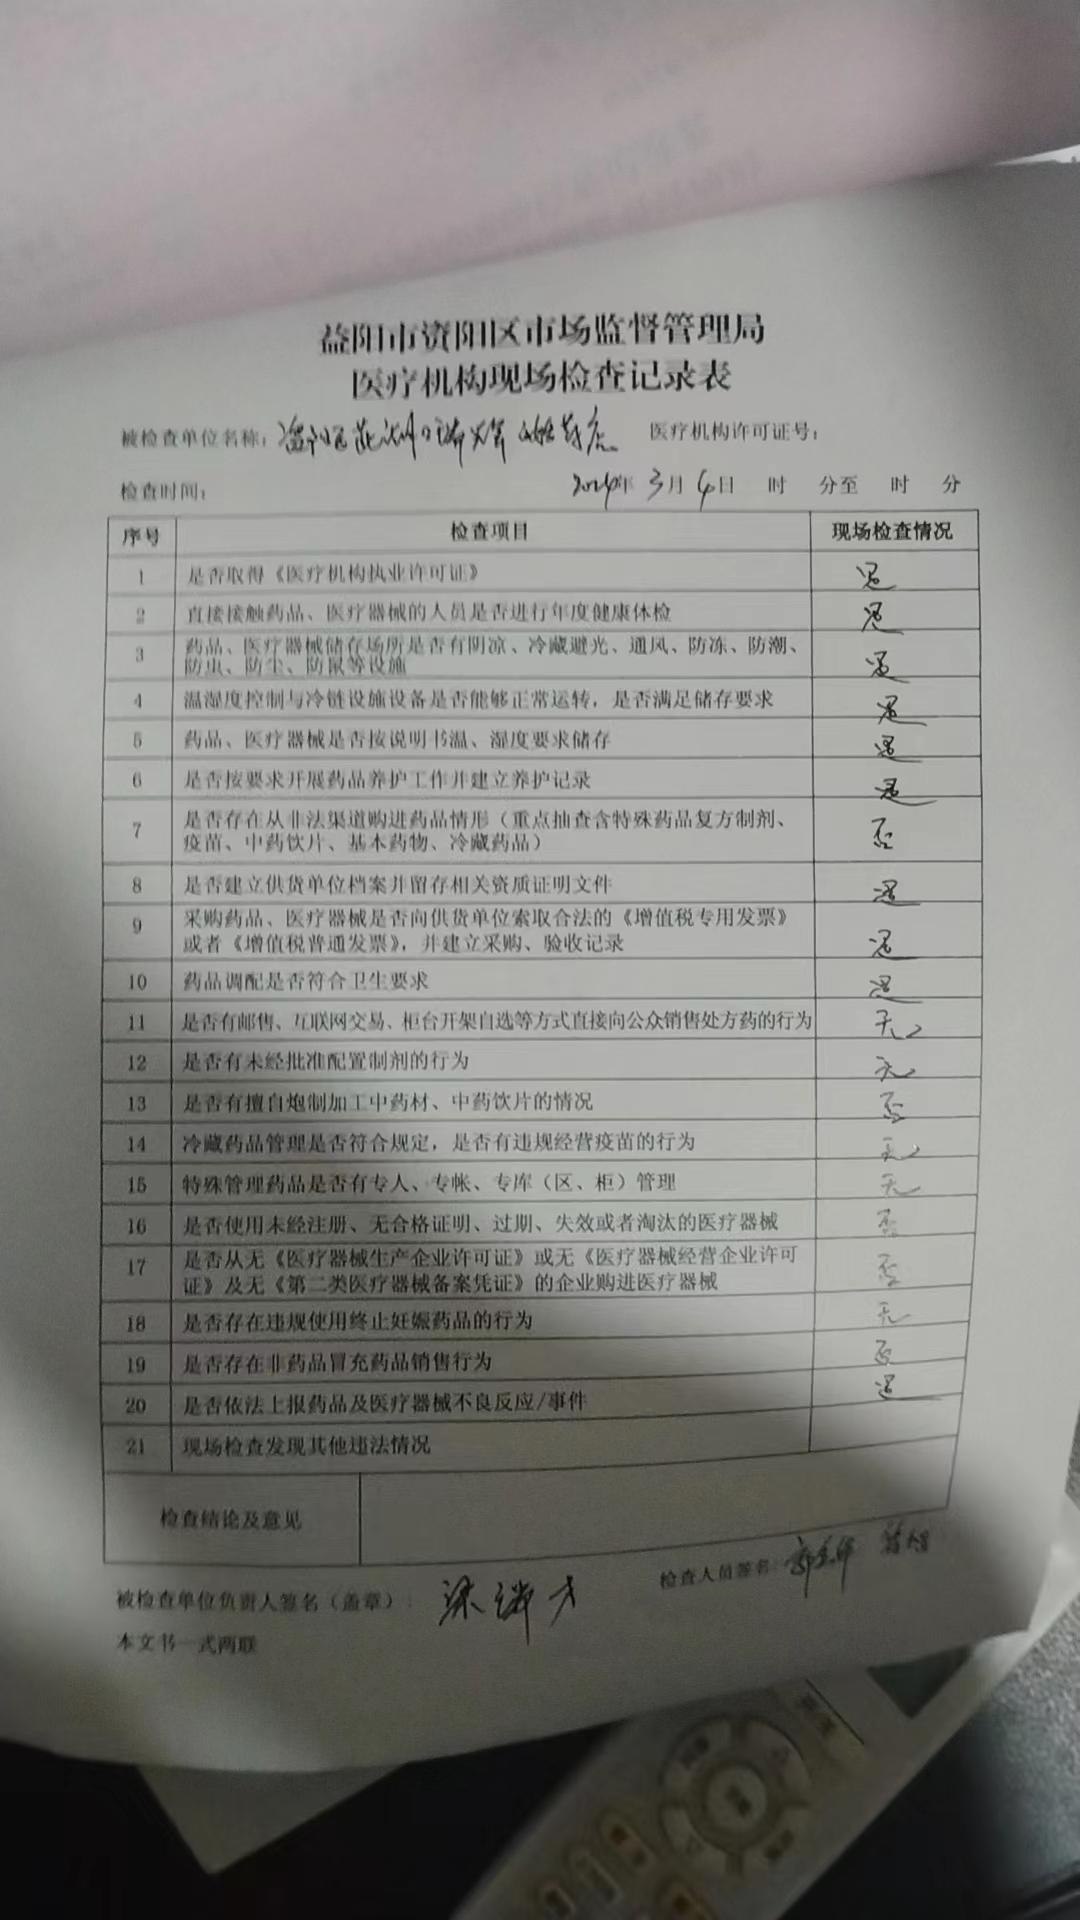 益阳市资阳区市场监督管理局
医疗机构现场检查记录表
被检查单位名称： 医疗机构许可证号：
检查时间： 2024年 3月 4日 时 分至 时 分
序号 检查项目 现场检查情况
1 是否取得《医疗机构执业许可证》 是
2 直接接触药品、医疗器械的人员是否进行年度健康体检 是
3 药品、医疗器械储存场所是否有阴凉、冷藏避光、通风、防冻、防潮、
防虫、防尘、防鼠等设施 是
4 温湿度控制与冷链设施设备是否能够正常运转，是否满足储存要求 是
5 药品、医疗器械是否按说明书温、湿度要求储存 是
6 是否按要求开展药品养护工作并建立养护记录 是
7 是否存在从非法渠道购进药品情形（重点抽查含特殊药品复方制剂、
疫苗、中药饮片、基本药物、冷藏药品） 否
8 是否建立供货单位档案并留存相关资质证明文件 是
9 采购药品、医疗器械是否向供货单位索取合法的《增值税专用发票》
或者《增值税普通发票》，并建立采购、验收记录 是
10 药品调配是否符合卫生要求 是
11 是否有邮售、互联网交易、柜台开架自选等方式直接向公众销售处方药的行为 无
12 是否有未经批准配置制剂的行为 无
13 是否有擅自炮制加工中药材、中药饮片的情况 否
14 冷藏药品管理是否符合规定，是否有违规经营疫苗的行为 无
15 特殊管理药品是否有专人、专帐、专库（区、柜）管理 无
16 是否使用未经注册、无合格证明、过期、失效或者淘汰的医疗器械 否
17 是否从无《医疗器械生产企业许可证》或无《医疗器械经营企业许可
证》及无《第二类医疗器械备案凭证》的企业购进医疗器械 否
18 是否存在违规使用终止妊娠药品的行为 无
19 是否存在非药品冒充药品销售行为 否
20 是否依法上报药品及医疗器械不良反应/事件 是
21 现场检查发现其他违法情况
检查结论及意见
被检查单位负责人签名（盖章）： 检查人员签名：
本文书一式两联